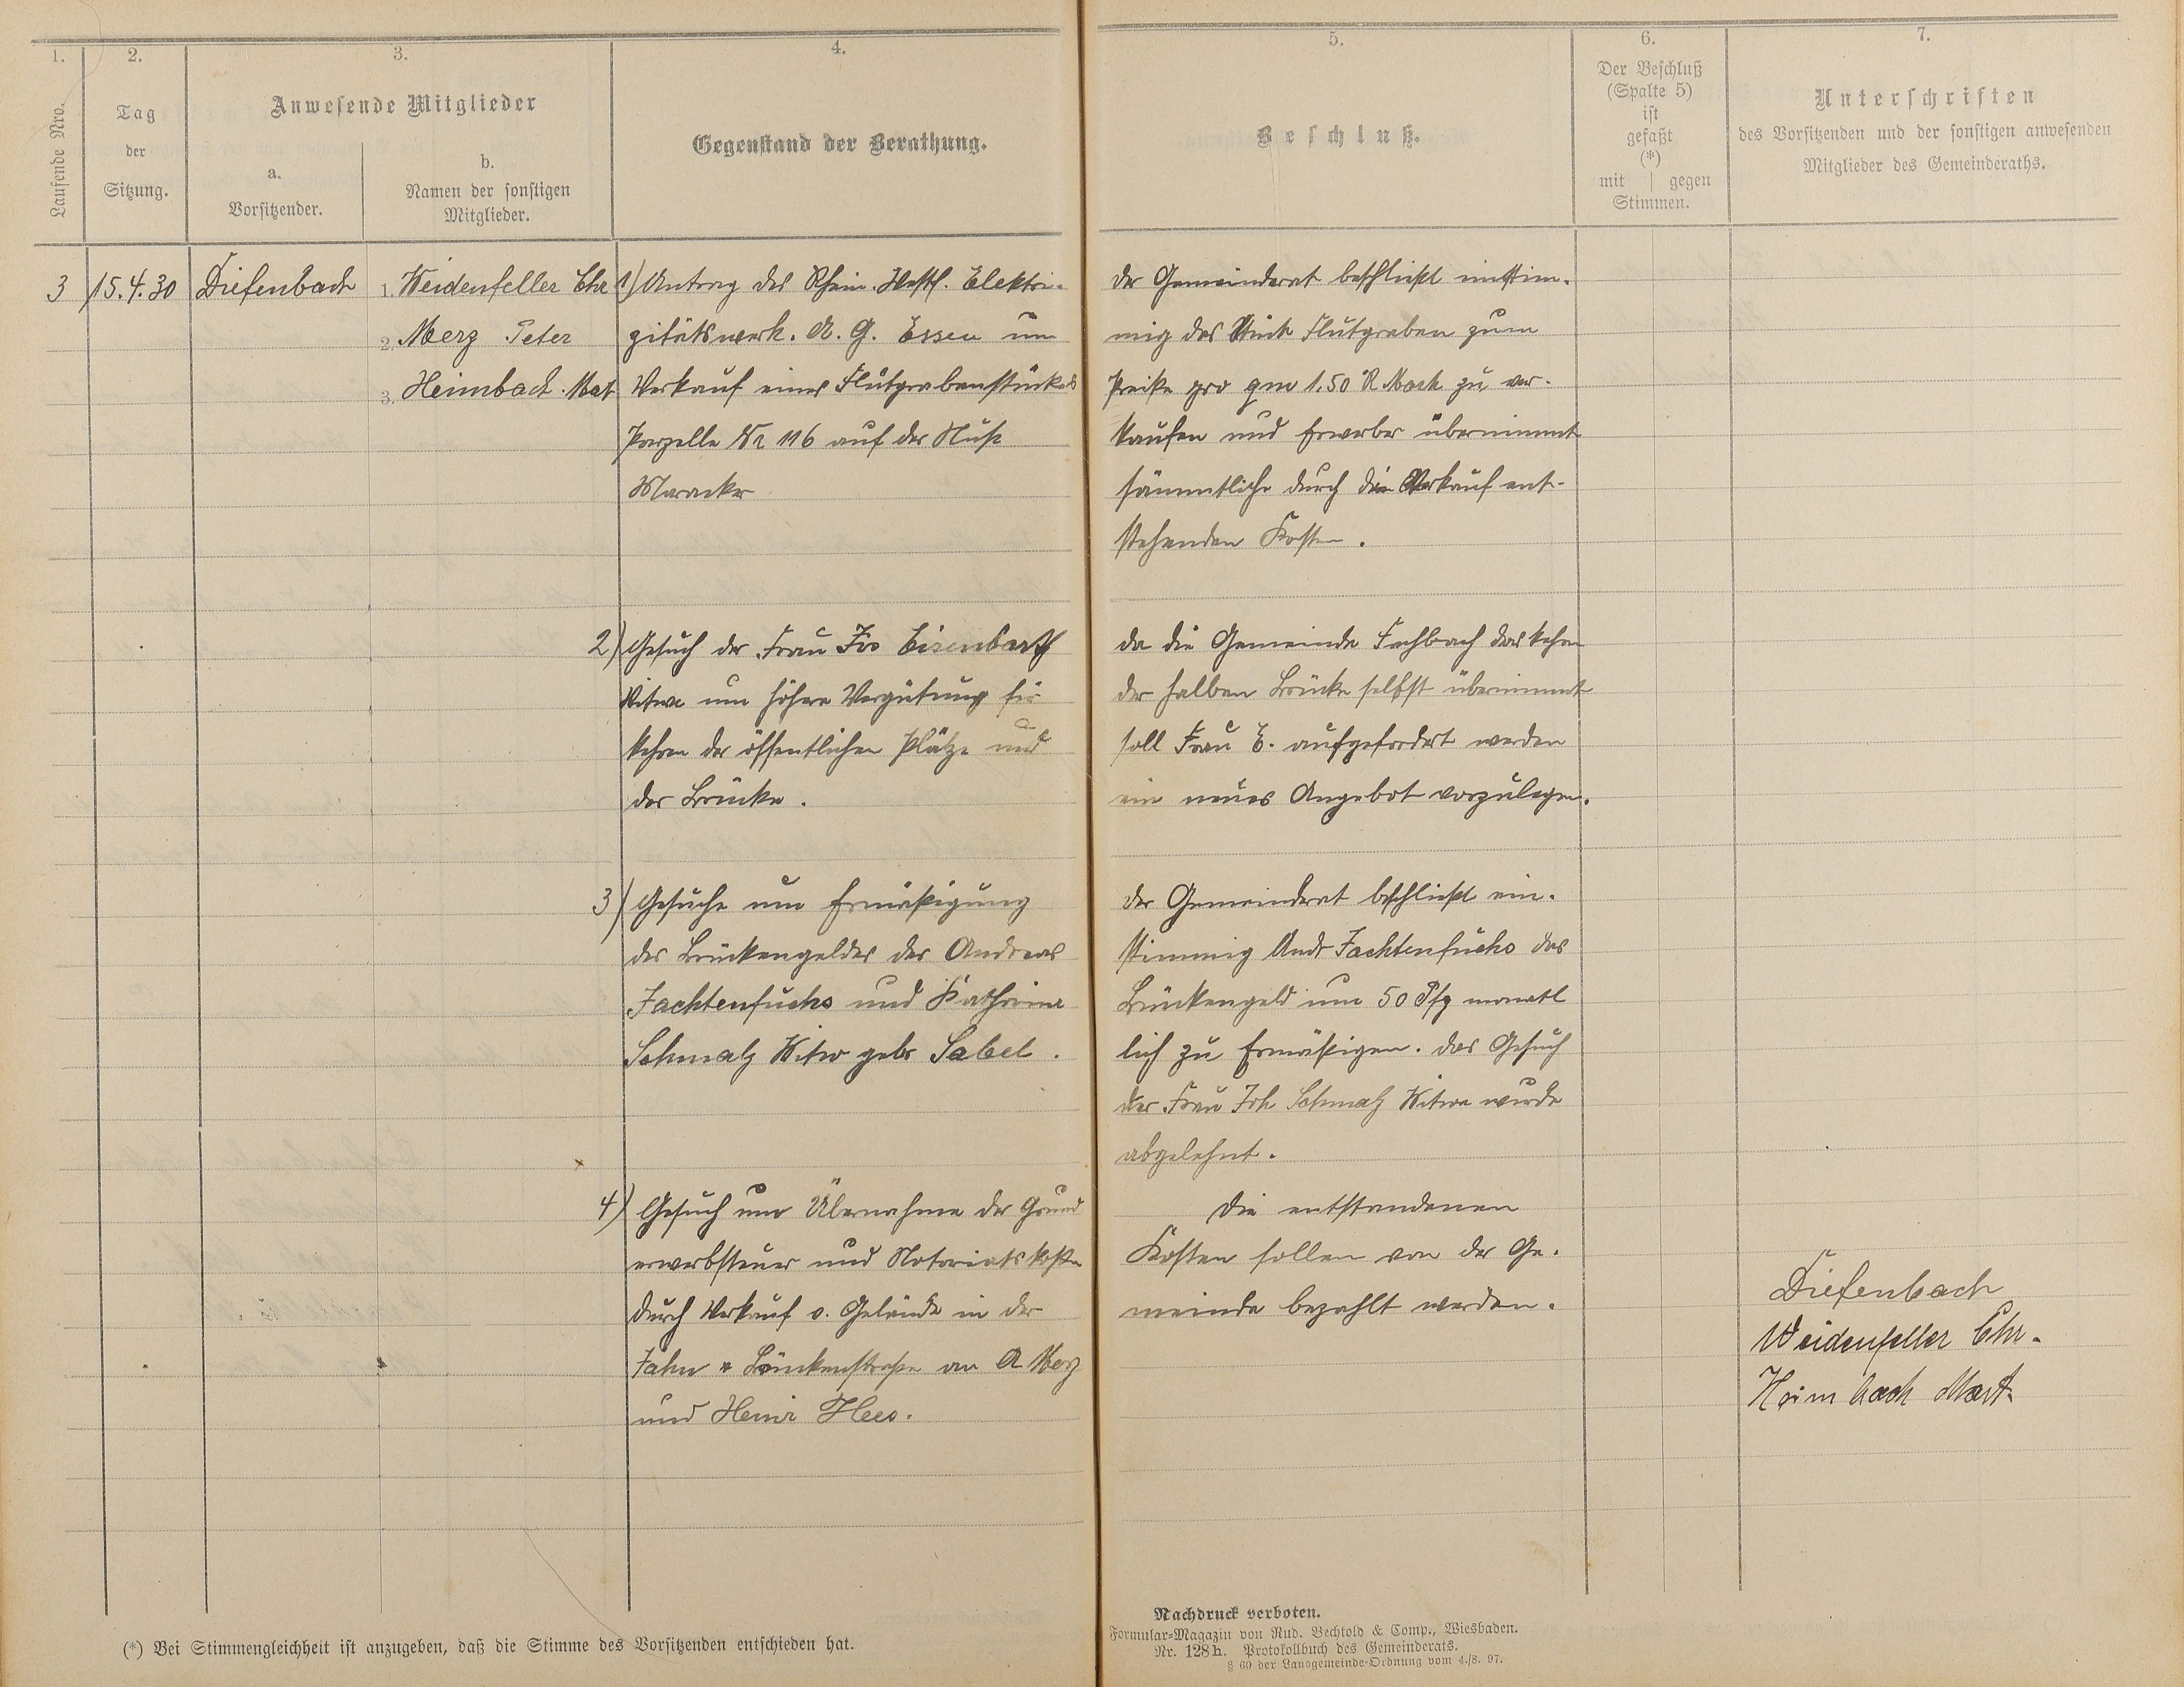 1.
2.
3.
4.
Laufende Nro.
Tag
der
Sitzung.
Anwesende Mitglieder
a.
Vorsitzender.
b.
Namen der sonstigen
Mitglieder.
Gegenstand der Berathung.
5.
6.
7.
Beschluß.
Der Beschluß
(Spalte 5)
ist
gefaßt
(*)
mit | gegen
Stimmen.
Unterschriften
des Vorsitzenden und der sonstigen anwesenden
Mitglieder des Gemeinderaths.
3
15.4.30
Diefenbach
1. Weidenfeller Chr
2. Merz Peter
3. Heimbach Mat
1) Antrag des Rhein. Westf. Elektri-
zitätswerk. A. G. Essen um
Verkauf eines Flutgrabenstückes
Parzelle Nr 116 auf der
2) Gesuch der Frau Jos Eisenbarth
Witwe um höhere Vergütung für
kehren der öffentlichen Plätze und
der Brücke.
3) Gesuche um Ermäßigung
des Brückengeldes des Andreas
Fachtenfuchs und Kathrina
Schmalz Witw geb Sabel.
4) Gesuch um Übernahme der Grund
erwerbsteuer und Notariatskosten
durch Verkauf v. Gelände in der
Jahn u Brückenstraße an A Merz
und Heinr Hees.
der Gemeinderat beschließt einstim-
mig das Stück Flutgraben zum
Preise pro qm 1.50 R Mark zu ver-
kaufen und Erwerber übernimmt
sämmtliche durch den Verkauf ent-
stehenden Kosten.
da die Gemeinde Fachbach das kehren
der halben Brücke selbst übernimmt
soll Frau E. aufgefordert werden
ein neues Angebot vorzulegen.
der Gemeinderat beschließt ein-
stimmig Andr Fachtenfuchs das
Brückengeld um 50 Pfg monatl
lich zu Ermäßigen. das Gesuch
der Frau Joh Schmalz Witwe wurde
abgelehnt.
Die entstandenen
Kosten sollen von der Ge-
meinde bezahlt werden.
Diefenbach
Weidenfeller Chr.
Heimbach Mart.
(*) Bei Stimmengleichheit ist anzugeben, daß die Stimme des Vorsitzenden entschieden hat.
Nachdruck verboten.
Formular-Magazin von Rud. Bechtold & Comp., Wiesbaden.
Nr. 128h. Protokollbuch des Gemeinderats.
§ 60 der Landgemeinde-Ordnung vom 4./8. 97.